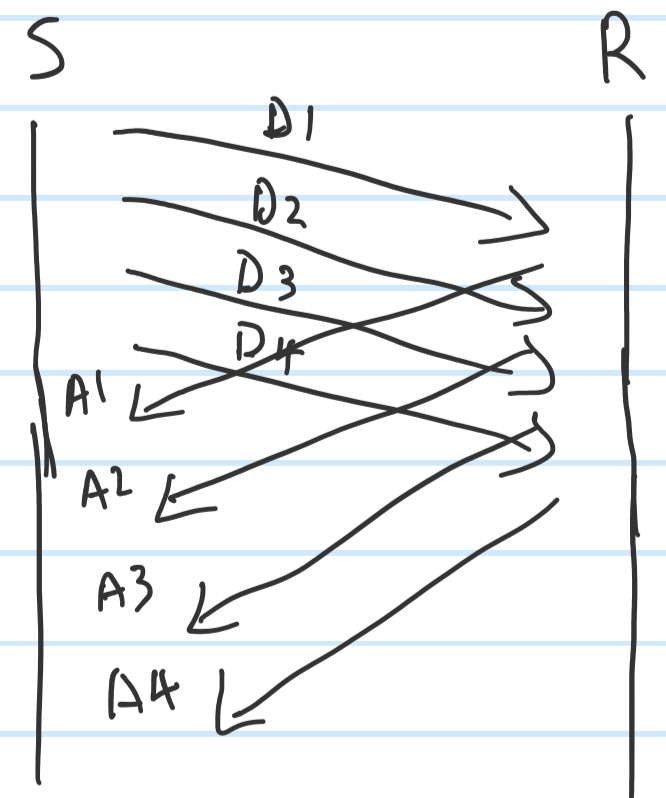 S R
D1
D2
D3
D4
A1
A2
A3
A4